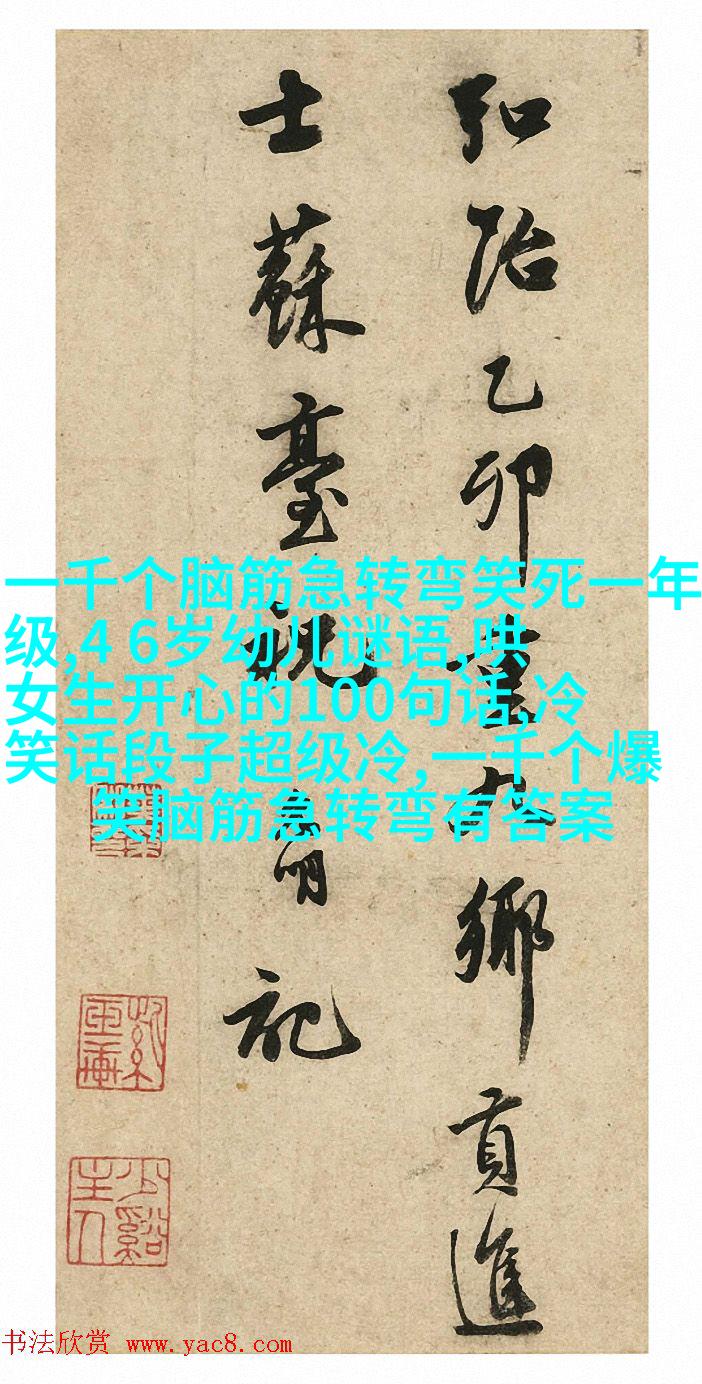 弘治乙卯重九鄉貢進
士蘇臺祝允明記
一千个脑筋急转弯笑死一年
级,4 6岁幼儿谜语,哄
女生开心的100句话,冷
笑话段子超级冷,一千个爆
笑脑筋急转弯有答案
少谿
主人
书法欣赏 www.yac8.com